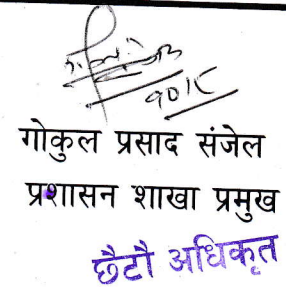 गोकुल प्रसाद संजेल
प्रशासन शाखा प्रमुख
छैटौ अधिकृत